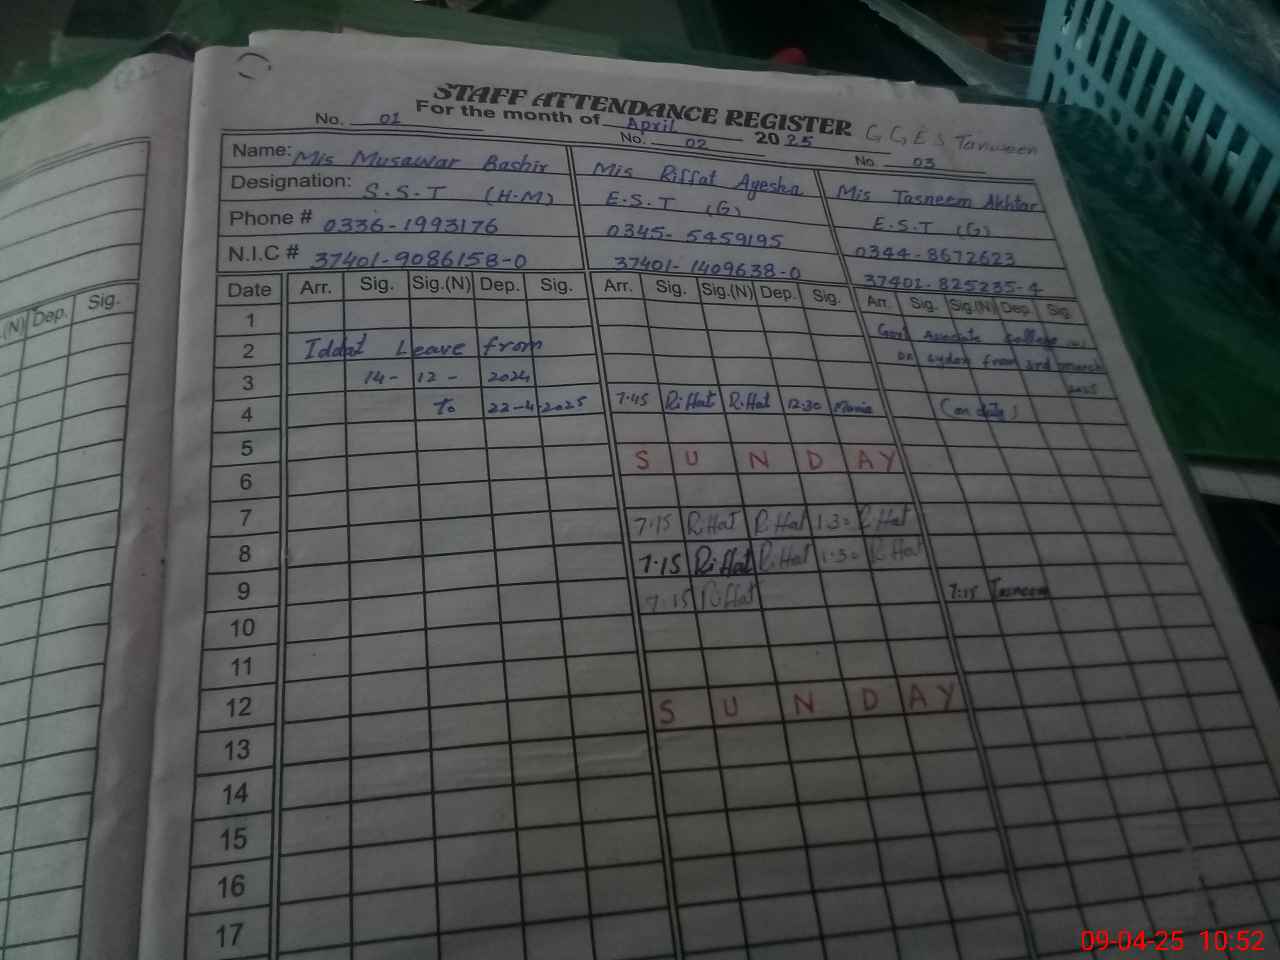 STAFF ATTENDANCE REGISTER
G.G.E.S Tanween
For the month of April 2025
No. 01 No. 02 No. 03
Name: Mis Musawar Bashir Mis Riffat Ayesha Mis Tasneem Akhtar
Designation: S.S.T (H.M) E.S.T (G) E.S.T (G)
Phone # 0336-1993176 0345-5459195 0344-8672623
N.I.C # 37401-9086158-0 37401-1409638-0 37401-825235-4
Date Arr. Sig. Sig.(N) Dep. Sig. Arr. Sig. Sig.(N) Dep. Sig. Arr. Sig. Sig.(N) Dep. Sig.
.(N) Dep. Sig.
1 Govt Associate College
2 Iddat Leave from from 3rd march
3 14-12-2024 2025
4 To 22-4-2025 7:45 Riffat Riffat 12:30 (on duty)
5
SUNDAY
6
7 7:15 Riffat Riffat 1:30 Riffat
8 7:15 Riffat Riffat 1:30 Riffat
9 7:15 Riffat 7:15 Tasneem
10
11
12 SUNDAY
13
14
15
16
17
09-04-25 10:52